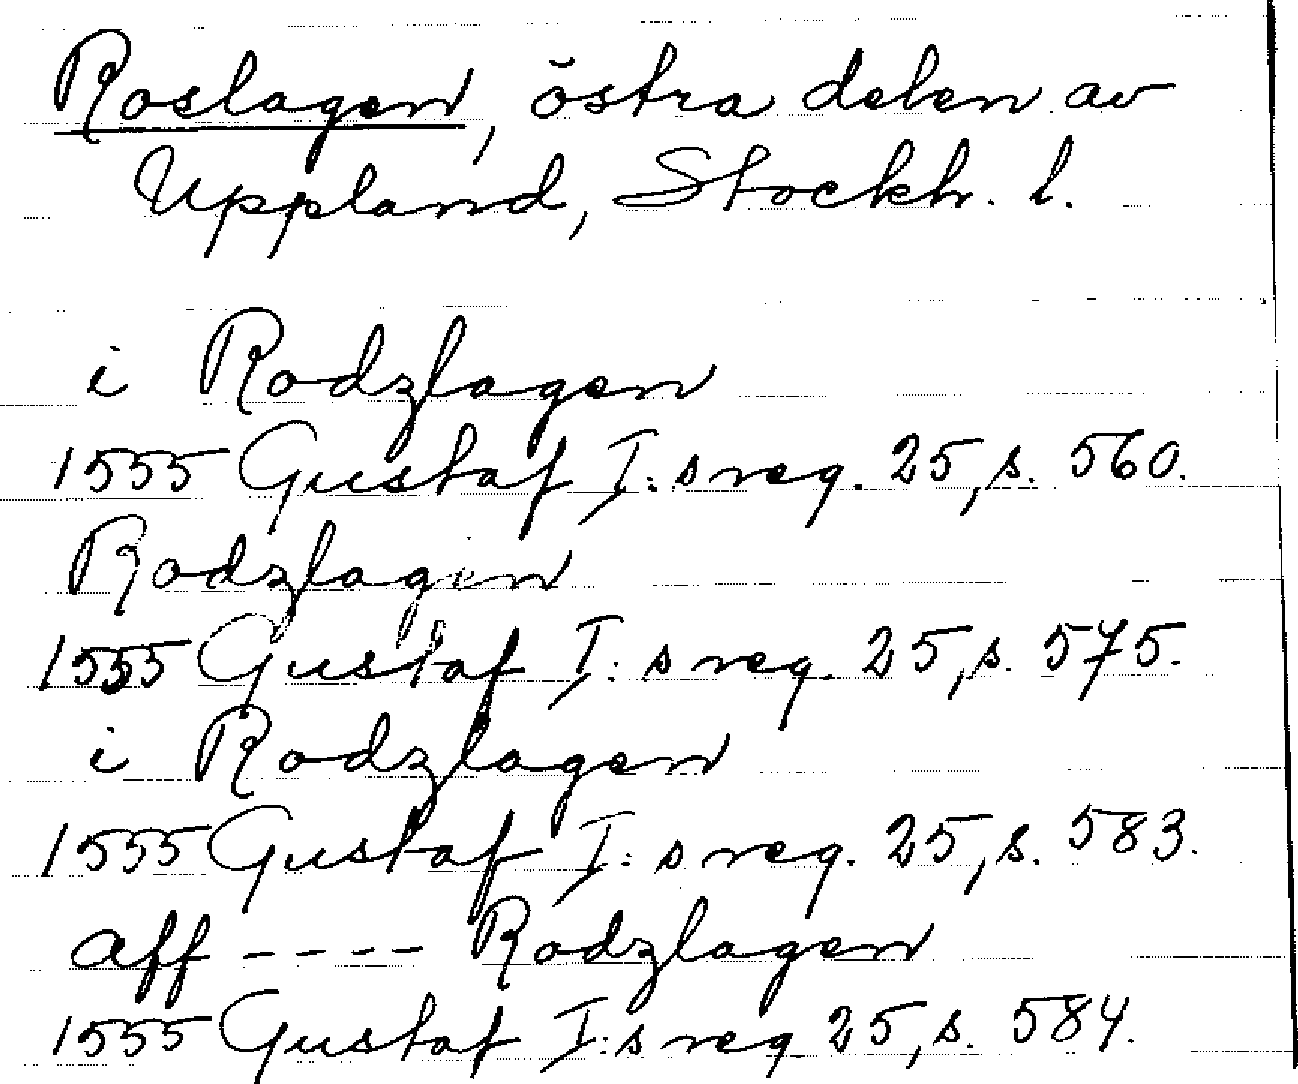 Roslagen, östra delen av
Uppland, Stockh. l.
i Rodzlagen
1555 Gustaf I:s reg. 25, s. 560.
Rodzlagin
1555 Gustaf I:s reg. 25, s. 575.
i Rodzlagen
1555 Gustaf I:s reg. 25, s. 583.
aff ---- Rodzlagen
1555 Gustaf I:s reg 25, s. 584.